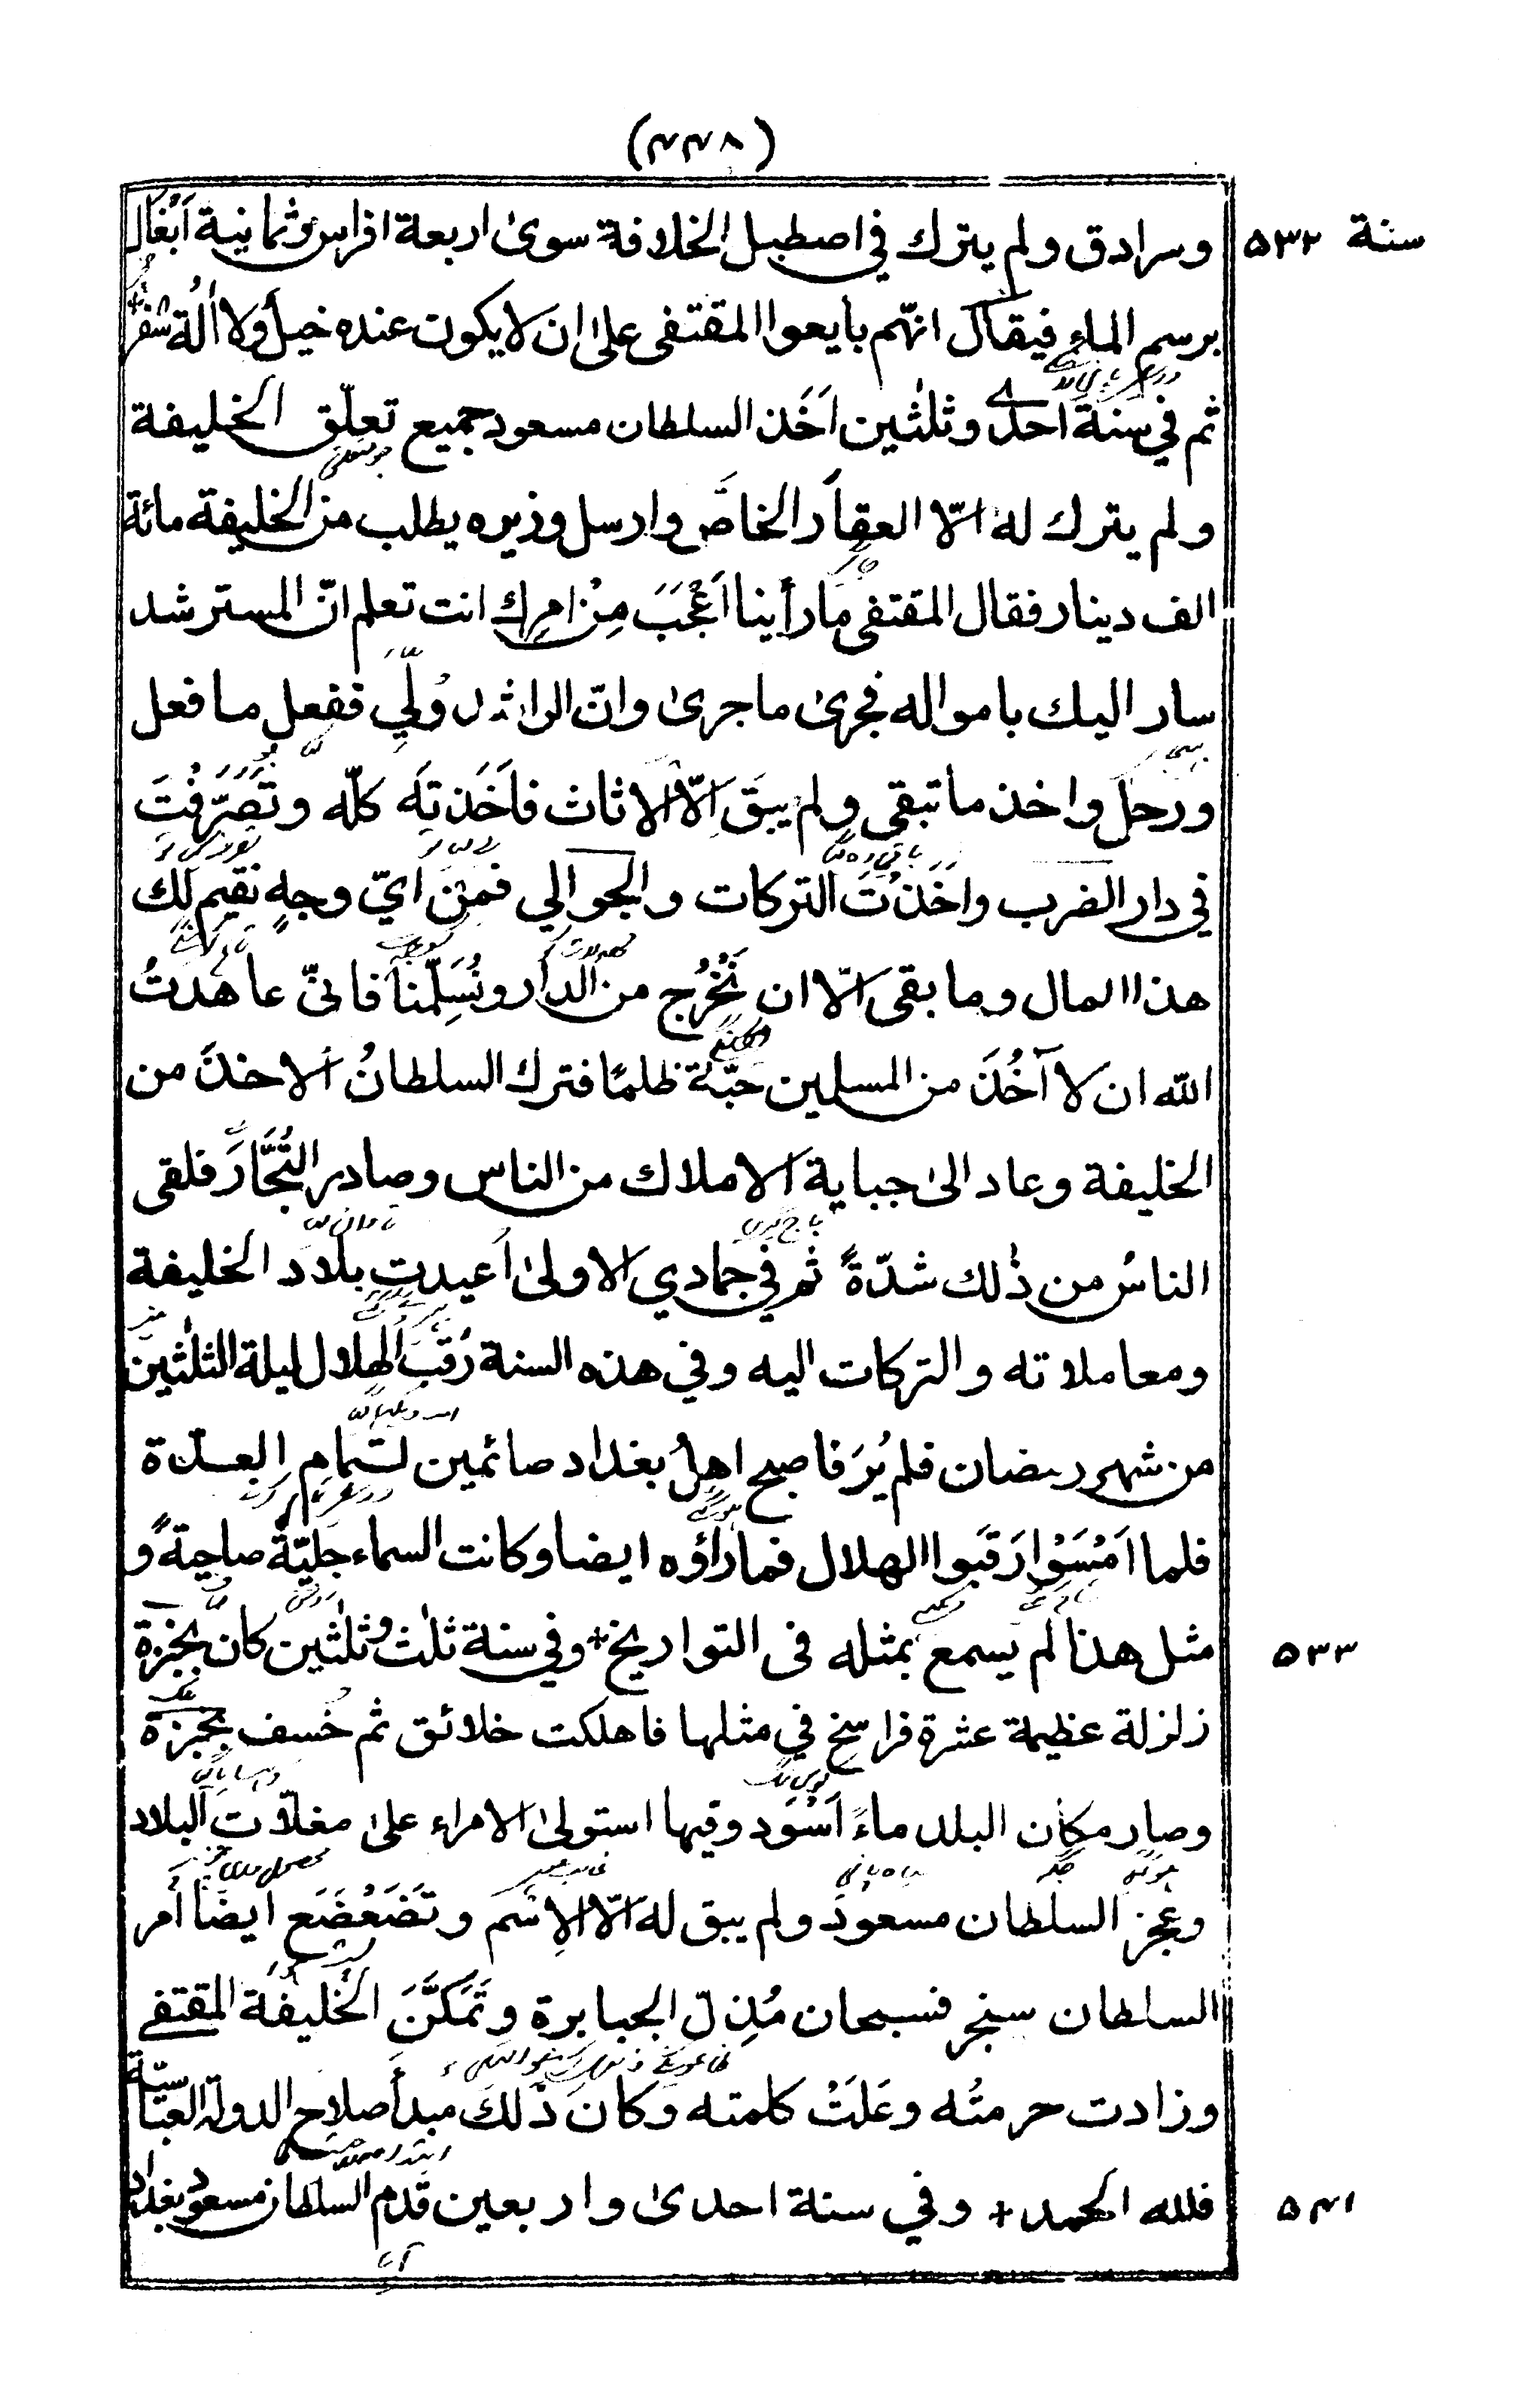 (٤٤٨)
سنة ٥٣٢
وسرادق ولم يترك في اصطبل الخلافة سوىٰ اربعة افراس وثمانية اَبْغَال
برسم الماء فيقال انّهم بايعوا المقتفى علىٰ ان لا يكون عنده خيل ولا اٰلة سَفَر+
ثم في سنة احدى وثلٰثين اَخَذ السلطان مسعود جميع تعلّق الخليفة
ولم يترك له الّا العقار الخاصّ وارسل وزيره يطلب من الخليفة مائة
الف دينار فقال المقتفى ما رأينا اَعْجَبَ مِنْ امرك انت تعلم انّ المسترشد
سار اليك باموالـه فجرىٰ ما جرىٰ وانّ الراشد وُلِّي ففعل ما فعل
ورحل واخذ ما تبقى ولم يبقَ اِلّا الاثاث فاَخَذتَه كلّه وتَصَرَّفْتَ
في دار الضرب واخَذْتَ التركات والجوالي فمِنْ ايّ وجهٍ نقيم لك
هذا المال وما بقى الّا ان نَخْرُج من الدار ونُسَلِّمنا فانىّ عاهدتُ
الله ان لا آخُذَ من المسلمين حبّة ظلمًا فترك السلطانُ الاخذَ من
الخليفة وعاد الىٰ جباية الاملاك من الناس وصادر التُجَّارَ فلقى
الناسُ من ذٰلك شدّةً ثم في جمادي الاولىٰ اُعيدت بلاد الخليفة
ومعاملاته والتركات اليه وفي هذه السنة رُقِبَ الهلال ليلة الثلٰثين
من شهر رمضان فلم يُرَ فاصبح اهلُ بغداد صائمين لتمامِ العدّة
فلما اَمْسَوْا رَقَبوا الهلال فما راؤه ايضا وكانت السماء جليّةً صاحيةً و
مثل هذا لم يسمع بمثله فى التواريخ+ وفي سنة ثلٰث وثلٰثين كان بجنزة
٥٣٣
زلزلة عظيمة عشرة فراسخ في مثلها فاهلكت خلائق ثم خُسف بجنزة
وصار مكان البلد ماءً اَسْوَد وفيها استولىٰ الامراء علىٰ مغلّات البلاد
وعجز السلطان مسعود ولم يبق له الّا الاِسْم وتَضَعْضَع ايضًا امر
السلطان سنجر فسبحان مُذِلّ الجبابرة وتَمَكَّنَ الخليفة المقتفى
وزادت حرمتُه وعَلَتْ كلمته وكان ذٰلك مبدأ صلاح الدولة العباسيّة
فلله الحمد+ وفي سنة احدىٰ واربعين قدم السلطان مسعود بغداد
٥٤١